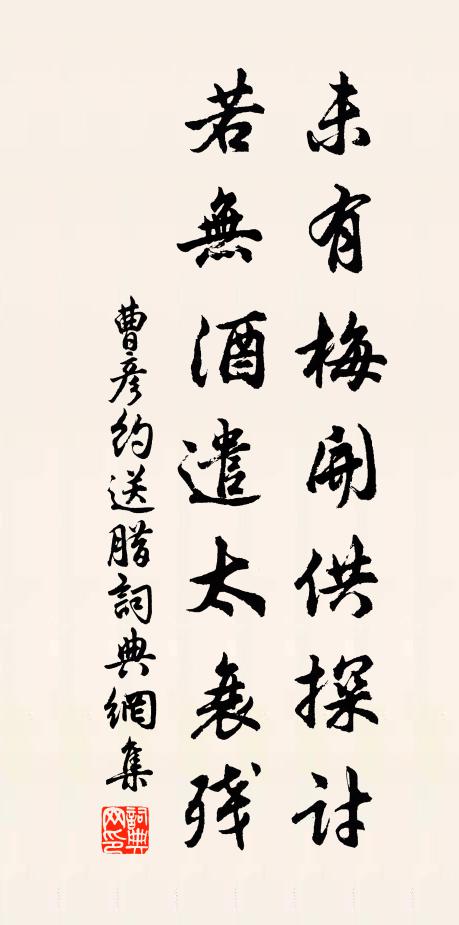 未有梅開供探討
若無酒遣太衰残
曹彦約送腊詞典網集
詞典
网印